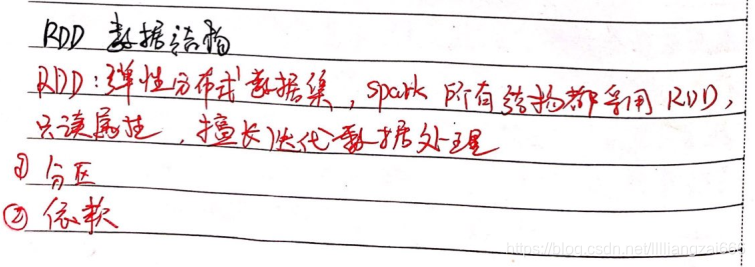 RDD 数据结构
RDD：弹性分布式数据集，spark 所有结构都采用 RDD，
只读属性，擅长迭代数据处理
① 分区
② 依赖